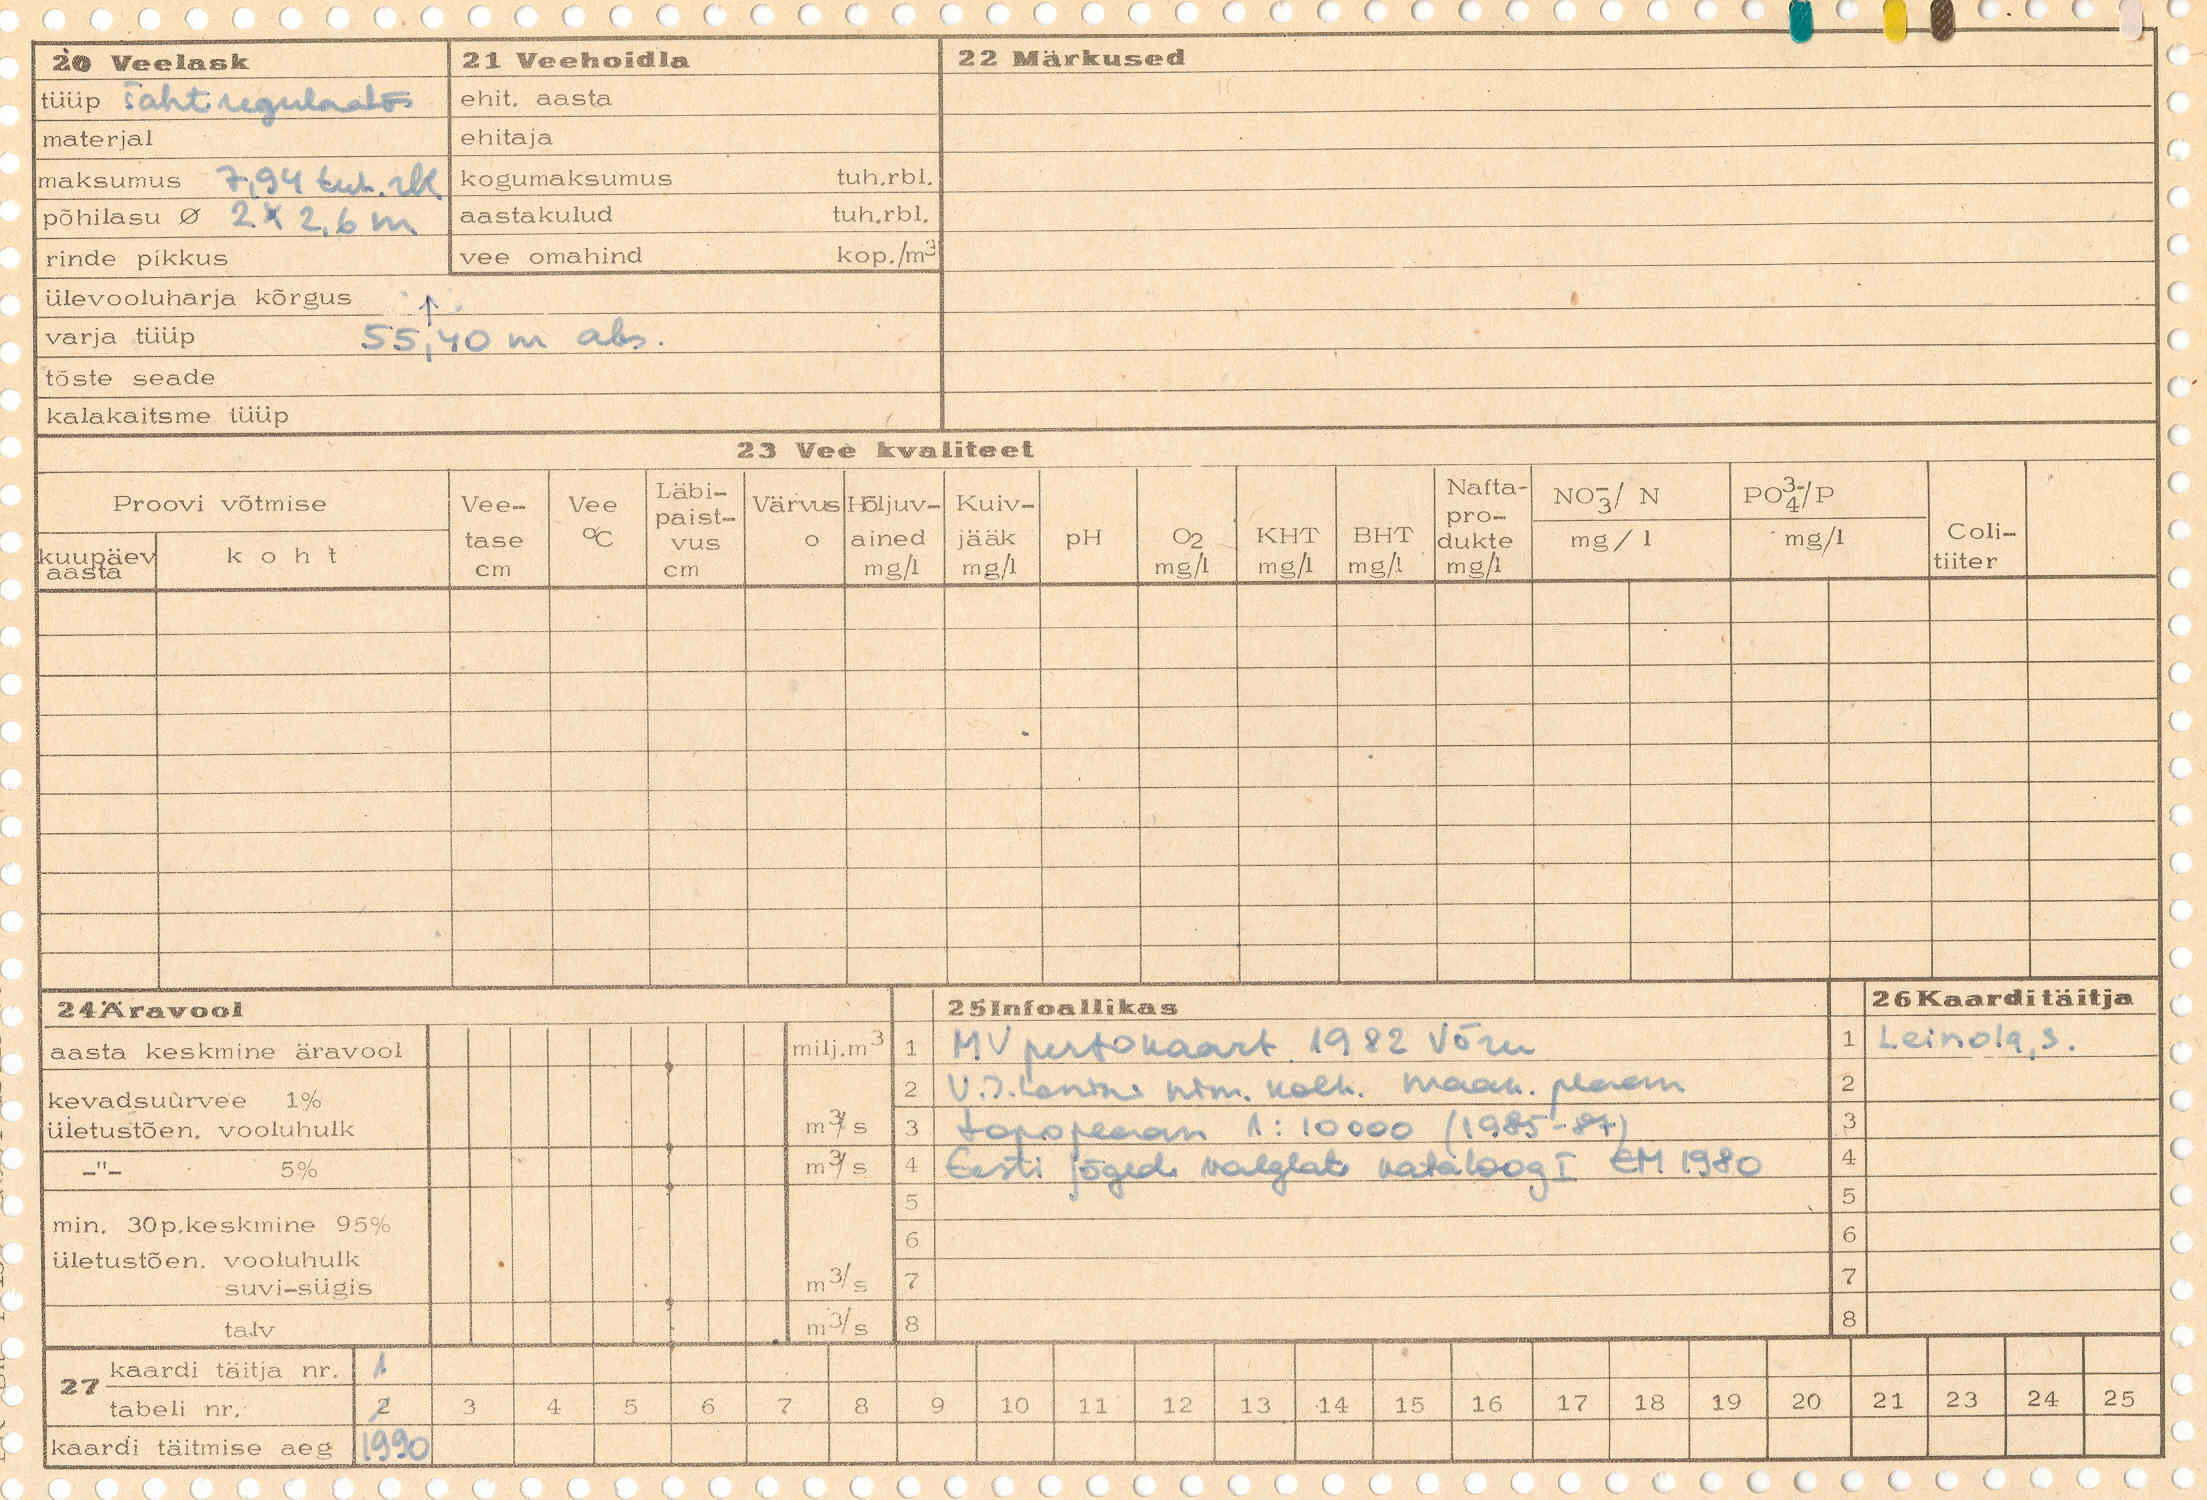 20 Veelask
tüüp šahtregulaator
materjal
maksumus 7,94 tuh. rbl
põhilasu Ø 2 x 2,6 m
rinde pikkus
ülevooluharja kõrgus ↑
varja tüüp 55,40 m abs.
tõste seade
kalakaitsme tüüp
21 Veehoidla
ehit. aasta
ehitaja
kogumaksumus tuh.rbl.
aastakulud tuh.rbl.
vee omahind kop./m³
22 Märkused
23 Vee kvaliteet
Proovi võtmise
kuupäev aasta
koht
Vee-
tase
cm
Vee
°C
Läbi-
paist-
vus
cm
Värvus
o
Hõljuv-
ained
mg/l
Kuiv-
jääk
mg/l
pH
O₂
mg/l
KHT
mg/l
BHT
mg/l
Nafta-
pro-
dukte
mg/l
NO₃⁻/ N
mg/l
PO₄³⁻/P
mg/l
Coli-
tiiter
24 Äravool
aasta keskmine äravool milj.m³
kevadsuurvee 1%
ületustõen. vooluhulk m³/s
-"- 5% m³/s
min. 30p.keskmine 95%
ületustõen. vooluhulk
suvi-sügis m³/s
talv m³/s
25 Infoallikas
1 MV perfokaart 1982 Võru
2 V.I.Lenini nim. kolh. maak. plaan
3 topoplaan 1:10000 (1985-87)
4 Eesti jõgede valglate kataloog I EM 1980
5
6
7
8
26 Kaarditäitja
1 Leinola, S.
2
3
4
5
6
7
8
27 kaardi täitja nr. 1
tabeli nr. 2 3 4 5 6 7 8 9 10 11 12 13 14 15 16 17 18 19 20 21 23 24 25
kaardi täitmise aeg 1990